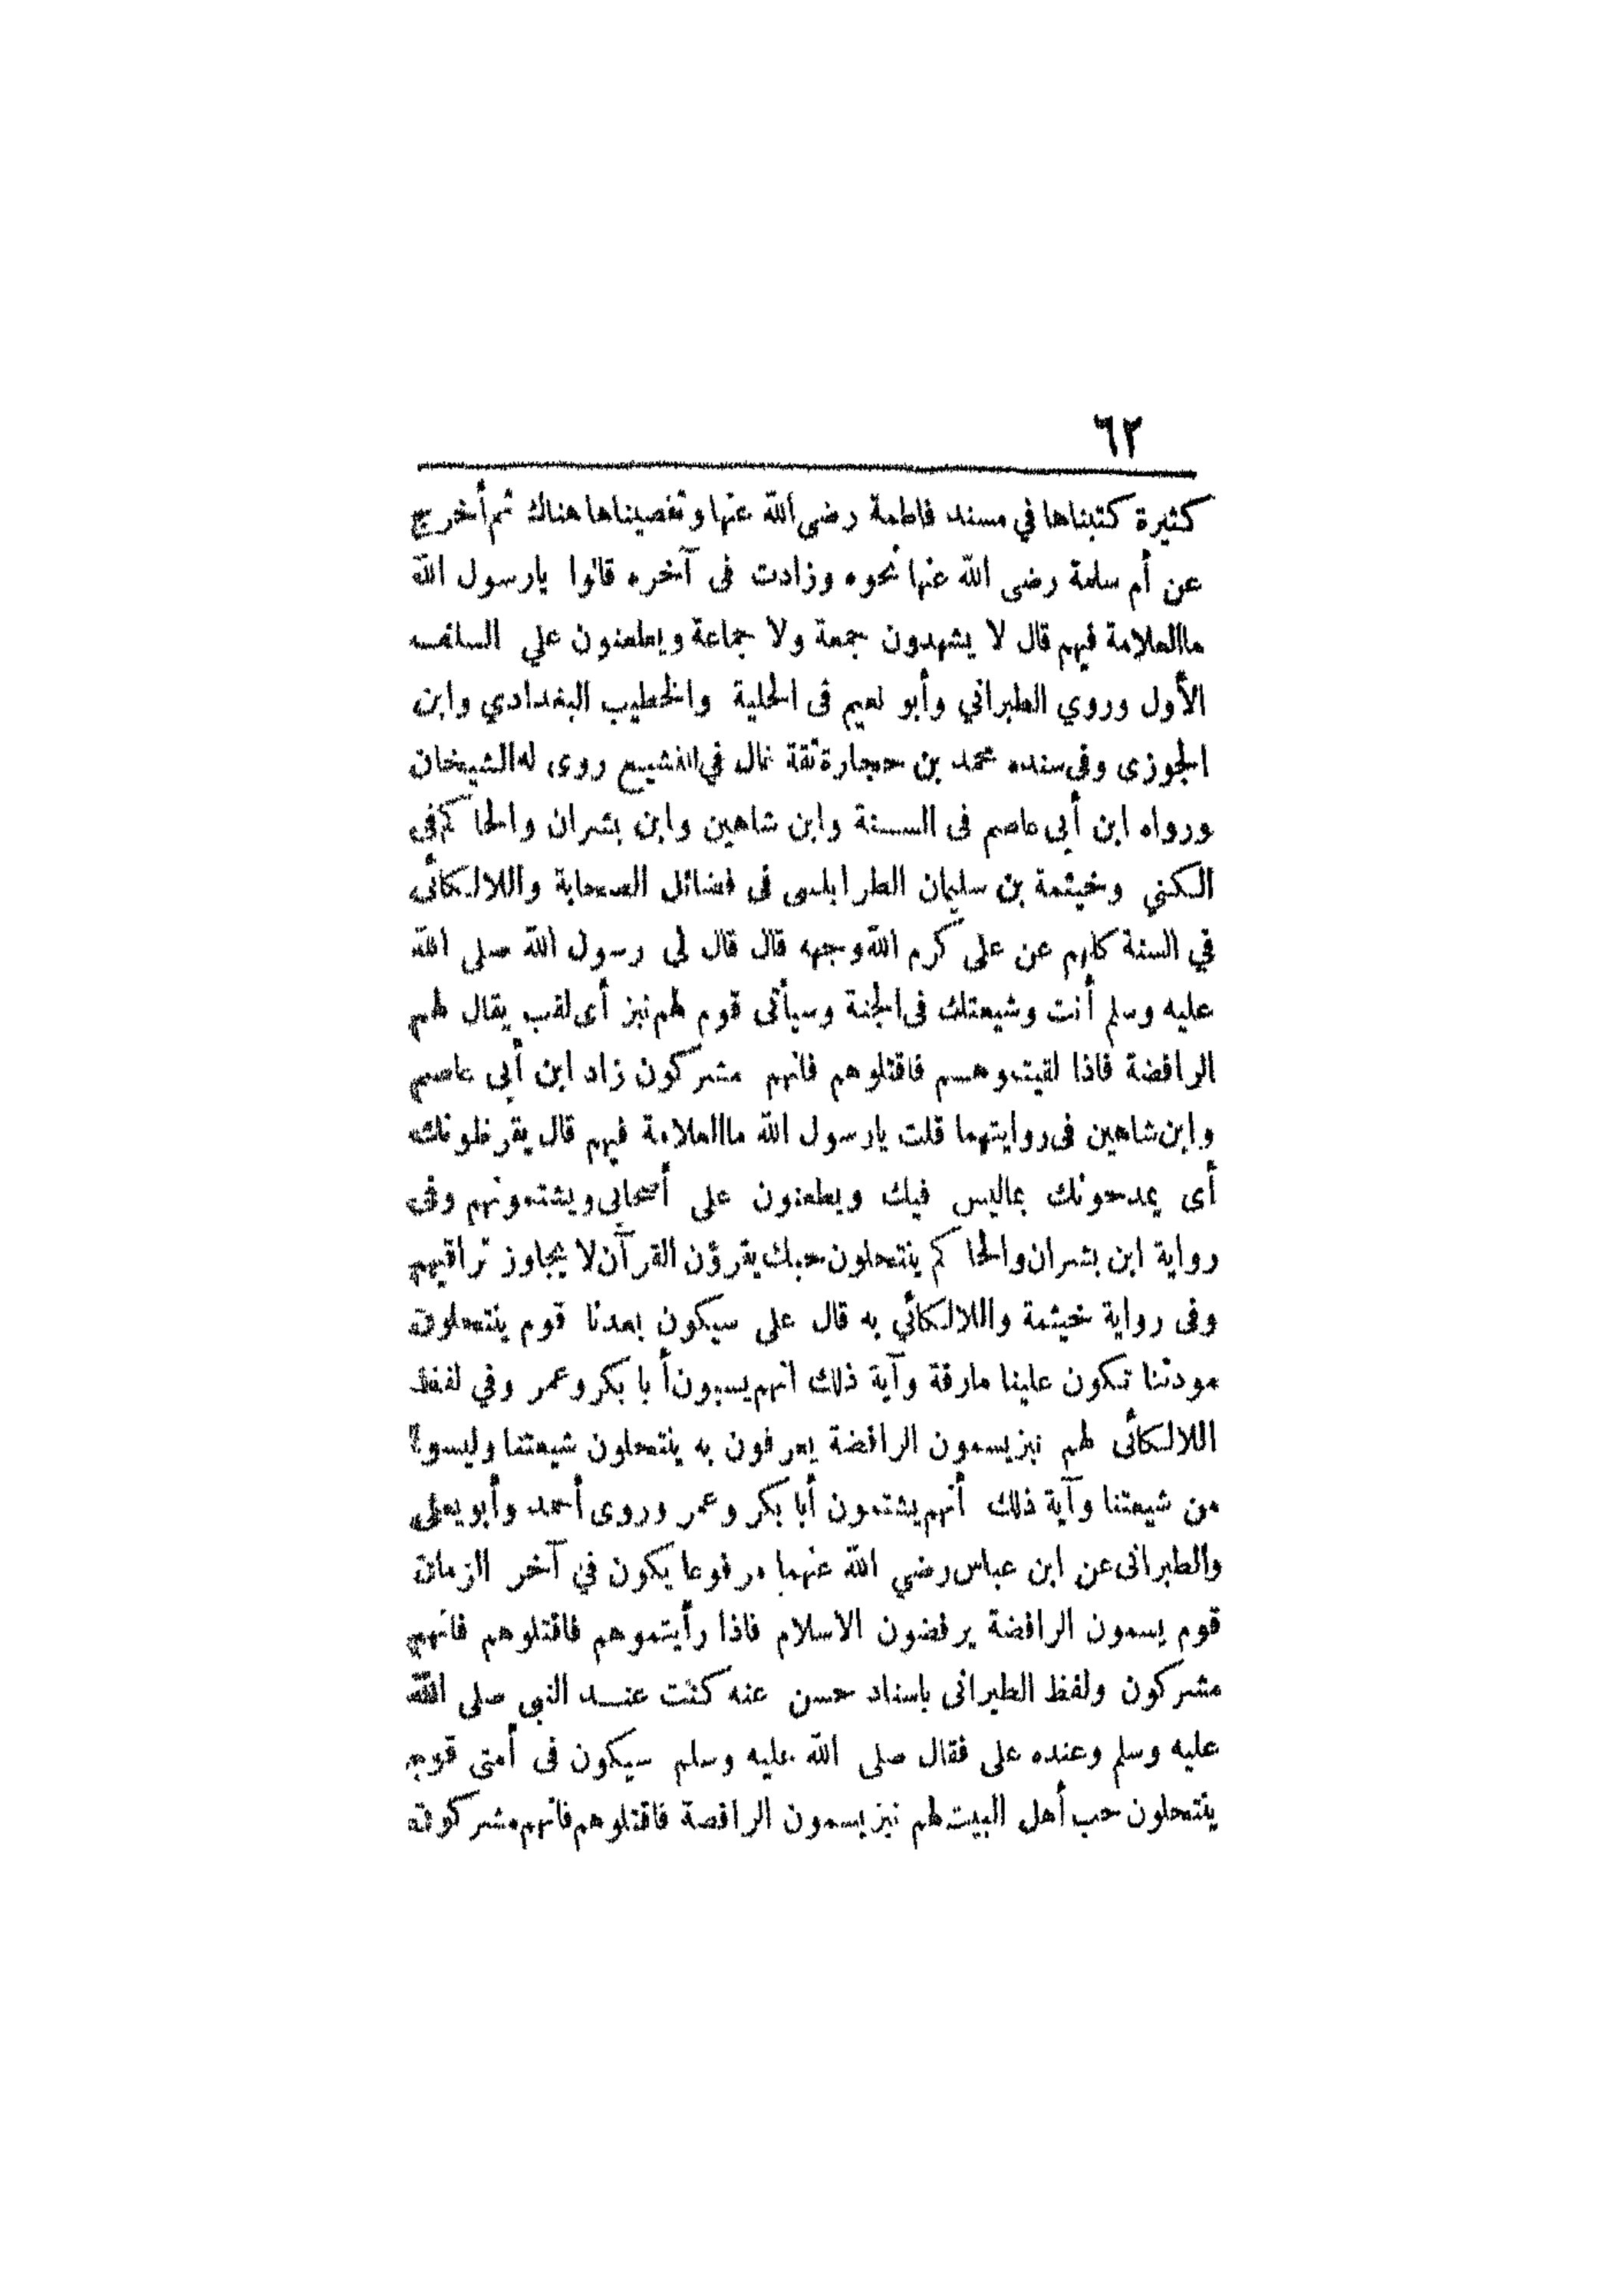 ٦٢
كثيرة كتبناها في مسند فاطمة رضى الله عنها وتقصيناها هناك ثم أخرج
عن أم سلمة رضى الله عنها نحوه وزادت فى آخره قالوا يارسول الله
ماالعلامة فيهم قال لا يشهدون جمعة ولا جماعة ويطعنون علي السلف
الأول وروي الطبراني وأبو نعيم فى الحلية والخطيب البغدادي وابن
الجوزى وفى سنده محمد بن حجارة ثقة غال في التشييع روى له الشيخان
ورواه ابن أبى عاصم فى السنة وابن شاهين وابن بشران والحاكم فى
الكني وخيثمة بن سليمان الطرابلسى فى فضائل الصحابة واللالكائى
في السنة كلهم عن على كرم الله وجهه قال قال لى رسول الله صلى الله
عليه وسلم أنت وشيعتك فى الجنة وسيأتى قوم لهم نبز أى لقب يقال لهم
الرافضة فاذا لقيتموهم فاقتلوهم فانهم مشركون زاد ابن أبى عاصم
وابن شاهين فى روايتهما قلت يارسول الله ماالعلامة فيهم قال يقرظونك
أى يمدحونك بماليس فيك ويطعنون على أصحابى ويشتمونهم وفى
رواية ابن بشران والحاكم ينتحلون حبك يقرؤن القرآن لا يجاوز تراقيهم
وفى رواية خيثمة واللالكائي به قال على سيكون بعدنا قوم ينتحلون
مودتنا تكون علينا مارقة وآية ذلك انهم يسبون أبا بكر وعمر وفي لفظ
اللالكائى لهم نبز يسمون الرافضة يعرفون به ينتحلون شيعتنا وليسوا
من شيعتنا وآية ذلك أنهم يشتمون أبا بكر وعمر وروى أحمد وأبو يعلى
والطبرانى عن ابن عباس رضي الله عنهما مرفوعا يكون في آخر الزمان
قوم يسمون الرافضة يرفضون الاسلام فاذا رأيتموهم فاقتلوهم فانهم
مشركون ولفظ الطبرانى باسناد حسن عنه كنت عند النبى صلى الله
عليه وسلم وعنده على فقال صلى الله عليه وسلم سيكون فى أمتى قوم
ينتحلون حب أهل البيت لهم نبز يسمون الرافصة فاقتلوهم فانهم مشركون